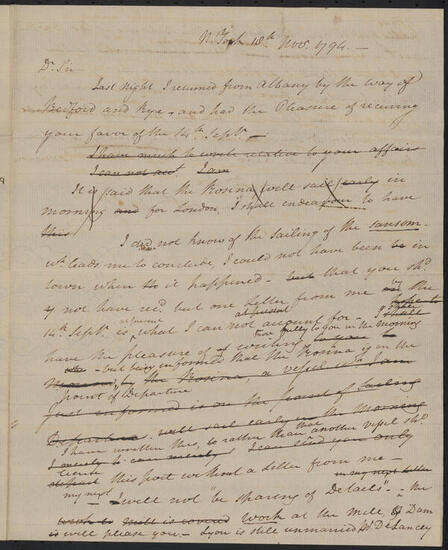 N York 18th Novr. 1794. —
Dr Sir
Last Night I returned from Albany by the way of
Bedford and Rye, and had the Pleasure of receiving
your favor of the 14th Septr. —
I have much to write relative to your affairs
I can not act I am
It is said that the Rosina will sail early in
morning and for London, I shall endeavour to have
this
I did not know of the sailing of the Sansom
wh. leads me to conclude, I could not have been in
town when it happened — but that you shd.
not have recd. but one Letter from me by the
14th Septr. is what I can not account for — I shall
at present
have the pleasure of writing fully to you in the morning
— but being informed that the Rosina is in the
by the Rosina, a vessel wh. I am
point of Departure
just informed is on the point of Sailing
Departure will sail early in the Morning
I have written this, to rather than that another vessel shd.
I merely to I can tell you only
leave this port without a Letter from me —
in my next letter
my next — I will not "be sparing of Details" — the
work at the mill & Dam
will please you — Lyon is still unmarried Mr. De Lancey